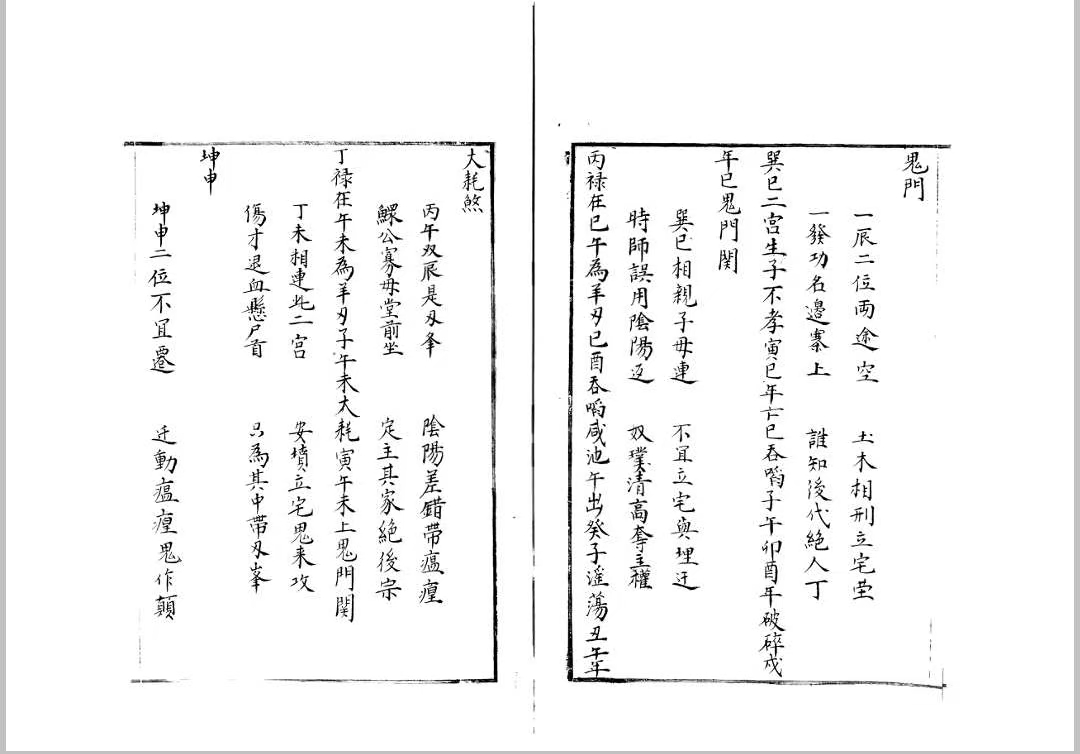 鬼門
一辰二位兩途空　土木相刑立宅塋
一發功名邊寨上　誰知後代絕人丁
巽巳二宮生子不孝寅巳年亡巳吞啗子午卯酉年破碎戌
年巳鬼門関
巽巳相親子母連　不宜立宅與埋迁
時師誤用陰陽返　奴璞清高奪主權
丙禄在巳午為羊刃巳酉吞啗咸池午出癸子滛蕩丑午年
大耗煞
丙午双辰是刃峯　陰陽差錯帶瘟㾮
鰥公寡母堂前坐　定主其家絕後宗
丁禄在午未為羊刃子午未大耗寅午未上鬼門関
丁未相連此二宮　安墳立宅鬼来攻
傷才退血懸尸首　只為其中帶刃峯
坤申
坤申二位不宜遷　迁動瘟㾮鬼作顛